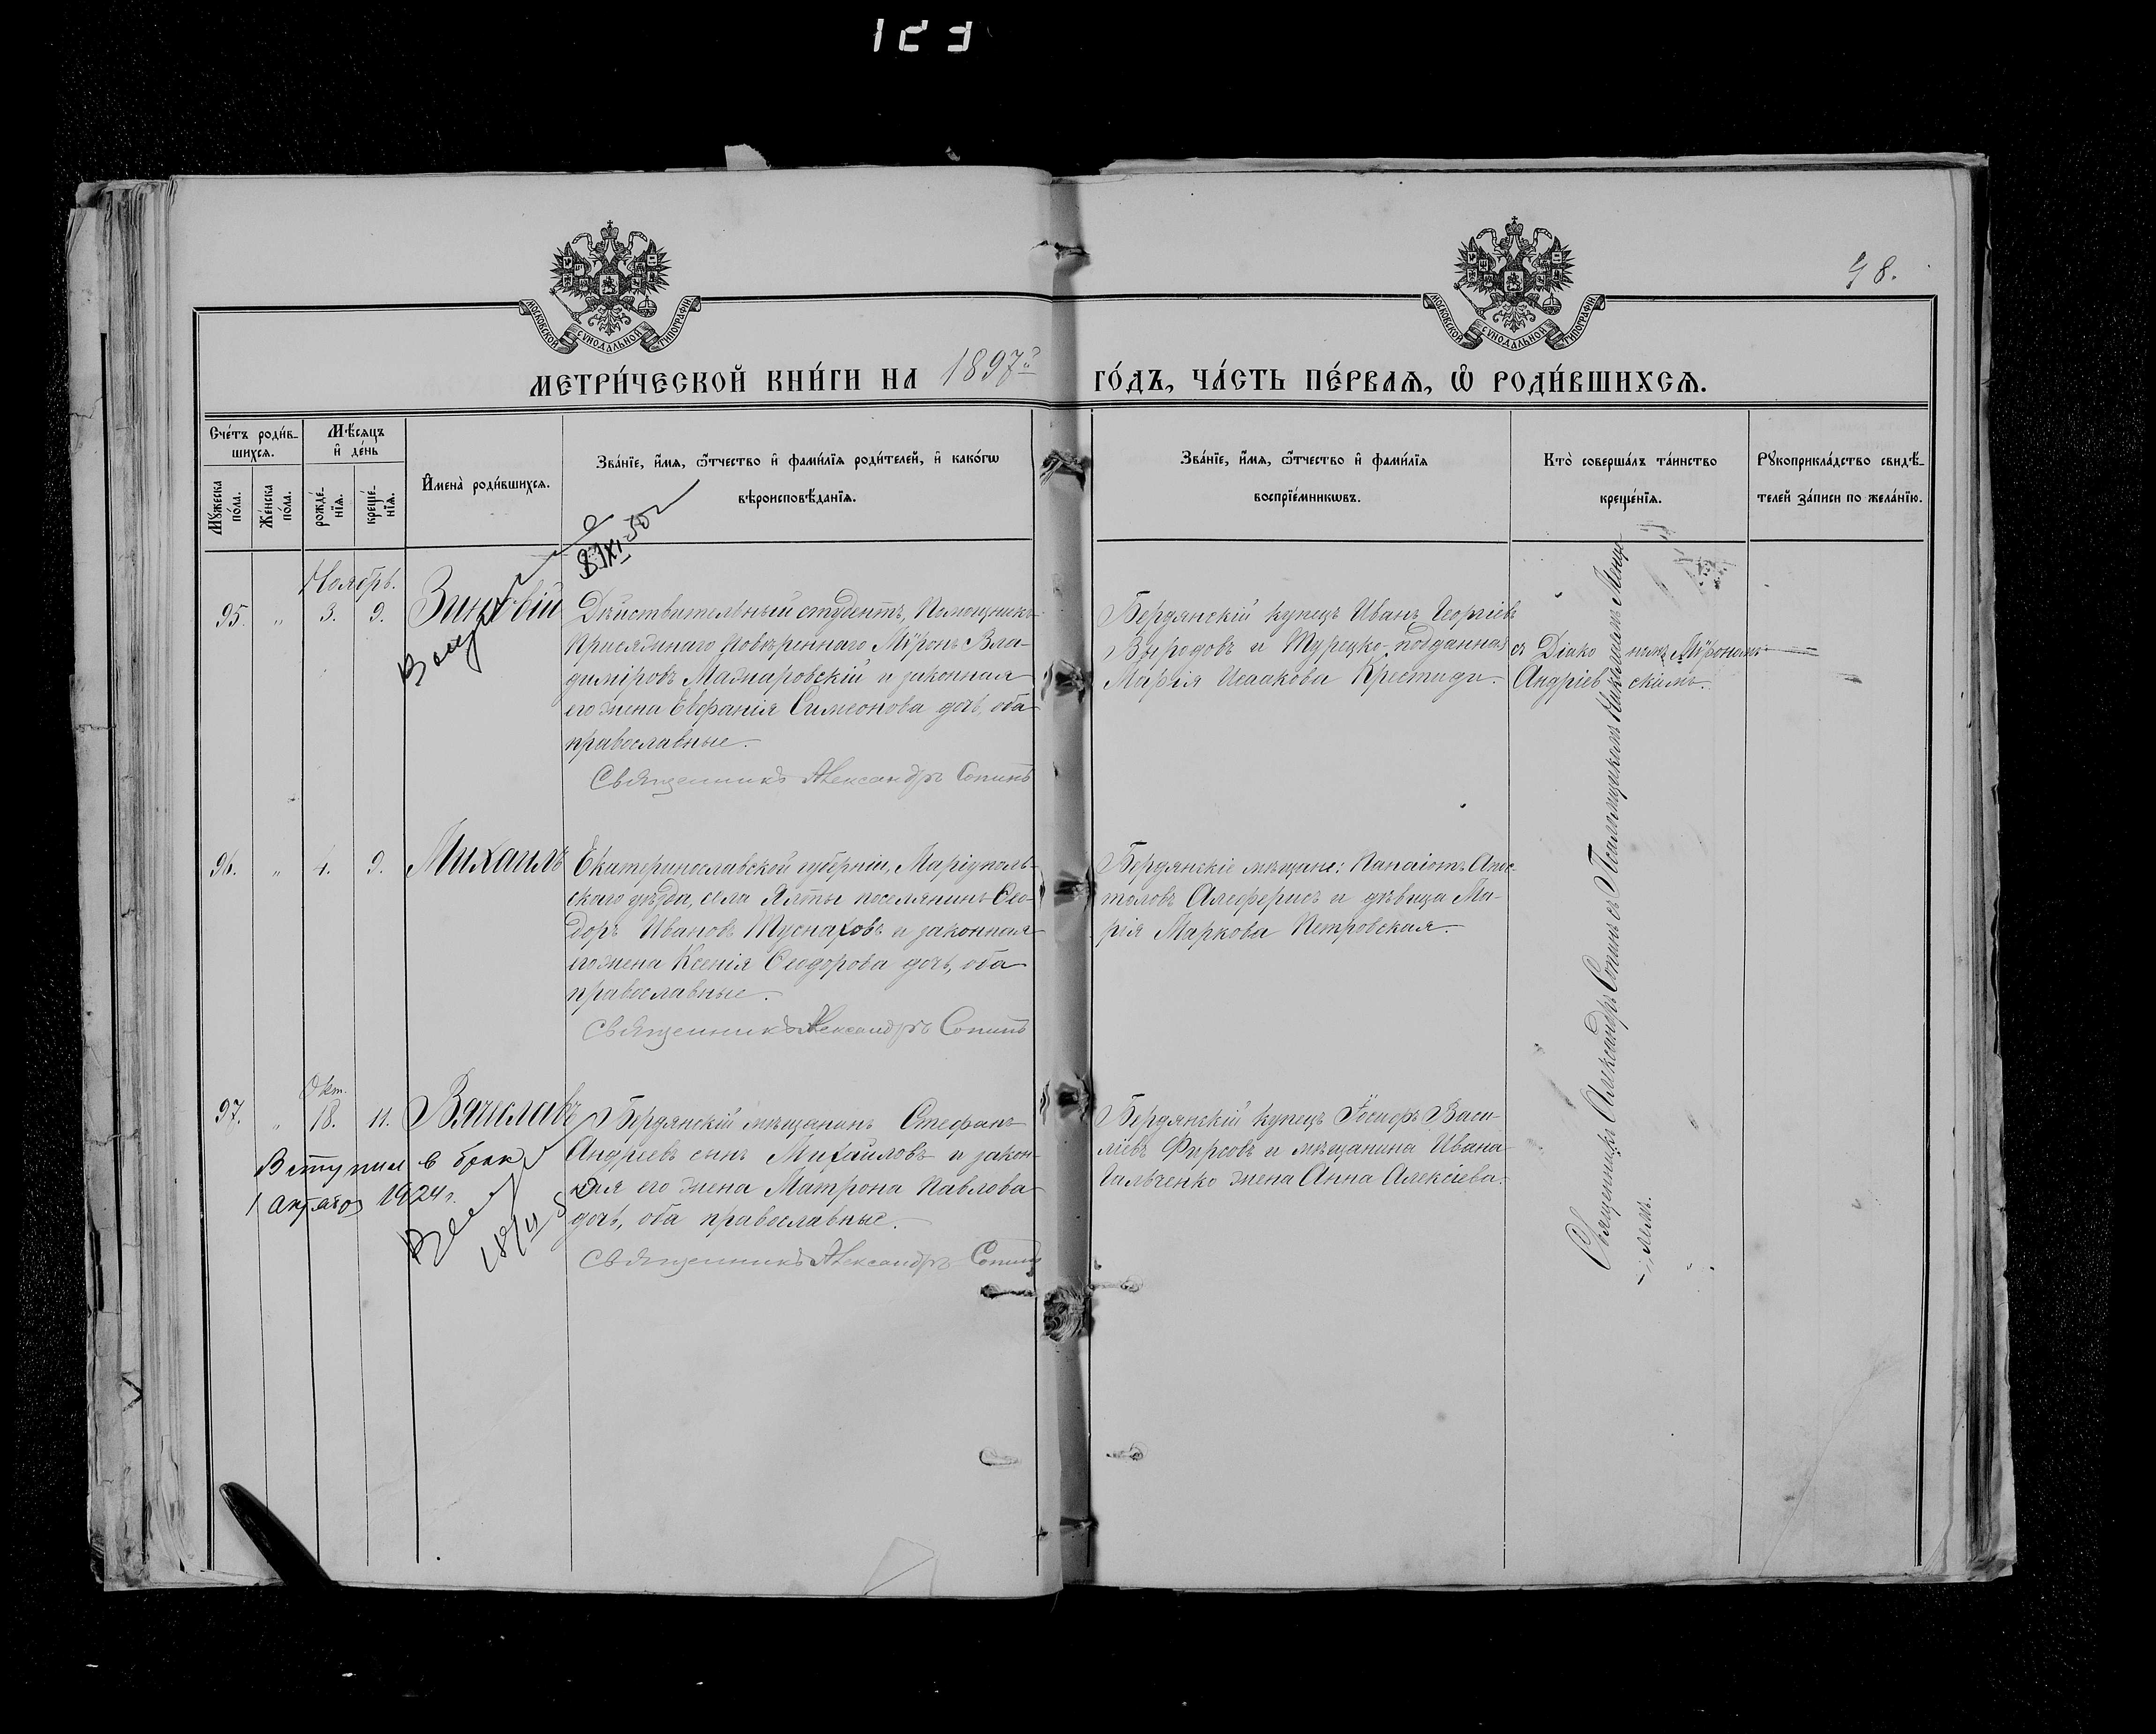 123
48.
МОСКОВСКОЙ СѴНОДАЛЬНОЙ ТИПОГРАФІИ
МОСКОВСКОЙ СѴНОДАЛЬНОЙ ТИПОГРАФІИ
МЕТРИ́ЧЕСКОЙ КНИ́ГИ НА 1897й ГО́ДЪ, ЧА́СТЬ ПЕ́РВАѦ, Ѡ҆ РОДИ́ВШИХСѦ.
Сче́тъ роди́в-
шихсѧ.
Мꙋ́жеска по́ла.
Же́нска по́ла.
Мѣ́сѧцъ
и҆ де́нь
рожде́-
нїѧ.
креще́-
нїѧ.
И҆мена̀ роди́вшихсѧ.
Зва́нїе, и҆́мѧ, ѻ҆́тчество и҆ фами́лїѧ роди́телей, и҆ како́гѡ
вѣроисповѣ́данїѧ.
Зва́нїе, и҆́мѧ, ѻ҆́тчество и҆ фами́лїѧ
воспрїе́мникѡвъ.
Кто̀ соверша́лъ та́инство
креще́нїѧ.
Рꙋкоприкла́дство свидѣ́-
телей за́писи по жела́нїю.
Ноябрь.
95. „ 3. 9. Зиновій
Дѣйствительный студентъ, Помощникъ
Присяжнаго Повѣреннаго Мѵронъ Вла-
диміровъ Мазнаровскій и законная
его жена Евфанія Симеонова дочь, оба
православные.
Священникъ Александръ Сопинъ
Бердянскій купецъ Иванъ Георгіевъ
Выродовъ и Турецко-подданная
Марія Исаакова Крестиди.
съ Діакономъ Мѵрономъ
Андріевскимъ.
96. „ 4. 9. Михаилъ
Екатеринославской губерніи, Маріуполь-
скаго уѣзда, села Ялты поселянинъ Ѳео-
доръ Ивановъ Тусnаховъ и законная
его жена Ксенія Ѳеодорова дочь, оба
православные.
Священникъ Александръ Сопинъ
Бердянскіе мѣщане: Панаіотъ Апос-
толовъ Алеферисъ и дѣвица Ма-
рія Маркова Петровская.
Окт.
97. „ 18. 11. Вячеславъ
Бердянскій мѣщанинъ Стефанъ
Андреевъ сынъ Михаиловъ и закон-
ная его жена Матрона Павлова
дочь, оба православные.
Священникъ Александръ Сопинъ
Вступил в брак
1924 г.
Бердянскій купецъ Іосифъ Васи-
ліевъ Фирсовъ и мѣщанина Ивана
Гальченко жена Анна Алексіева.
Священникъ Александръ Сопинъ съ Псаломщикомъ Николаемъ